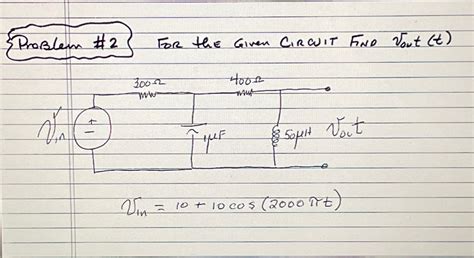 Problem #2 For the Given Circuit Find Vout (t)
300Ω 400Ω
Vin + − 1μF 50μH Vout
Vin = 10 + 10 cos (2000πt)